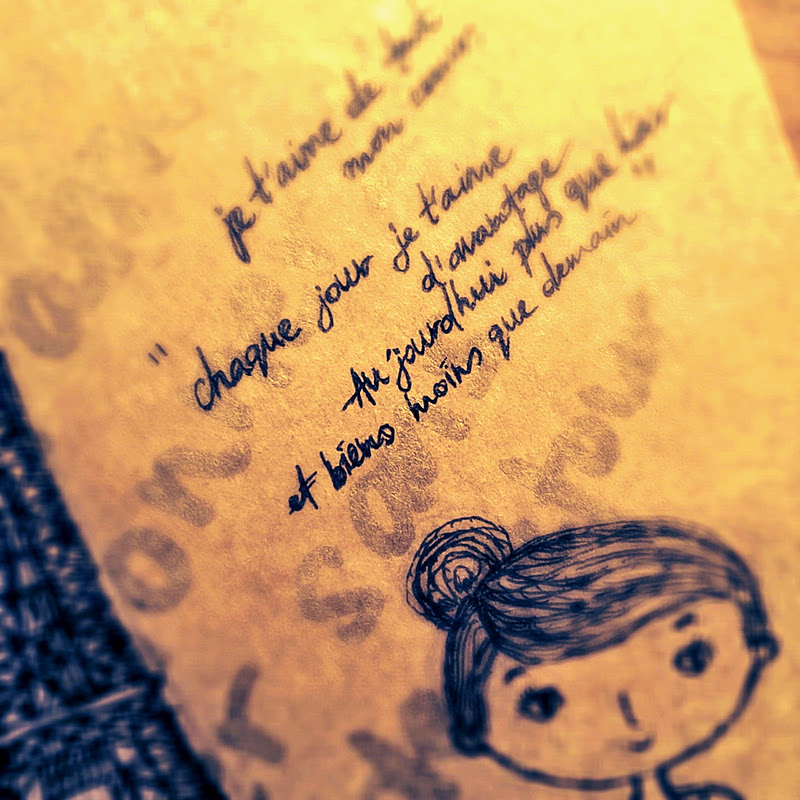 je t'aime de tout
mon coeur
" chaque jour je t'aime
d'avantage
Au'jourd'hui plus que hier
et biens moins que demain "